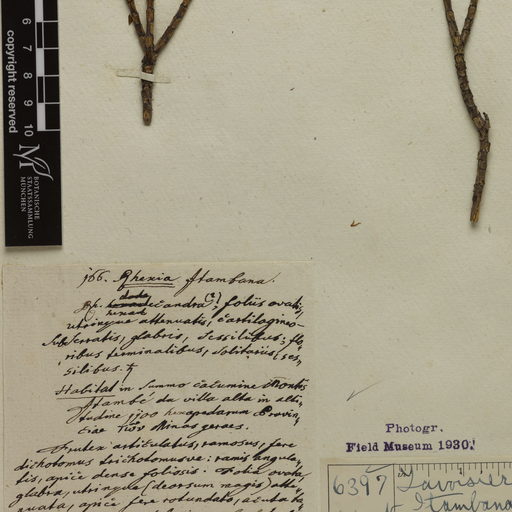 6
7
8
9
10
copyright reserved
BOTANISCHE
STAATSSAMMLUNG
MÜNCHEN
166. Rhexia Itambana.
Rh. dode candra (?), foliis ovatis,
utrinque attenuatis, cartilagineo-
subserratis, glabris, sessilibus; flo-
ribus terminalibus, solitariis, ses-
silibus. ♄
Habitat in summo cacumine Montis
Itambé da villa alta in alti-
tudine 5700 hexapedarum Provin-
ciae Minas geraes.
Frutex articulatus, ramosus, fere
dichotomus trichotomusve: ramis angula-
tis, apice dense foliosis. Folia ovata,
glabra, utrinque (deorsum magis) atte-
nuata, apice fere rotundato, acuta
Photogr.
Field Museum 1930!
6397
Lavoisiera
Itambana